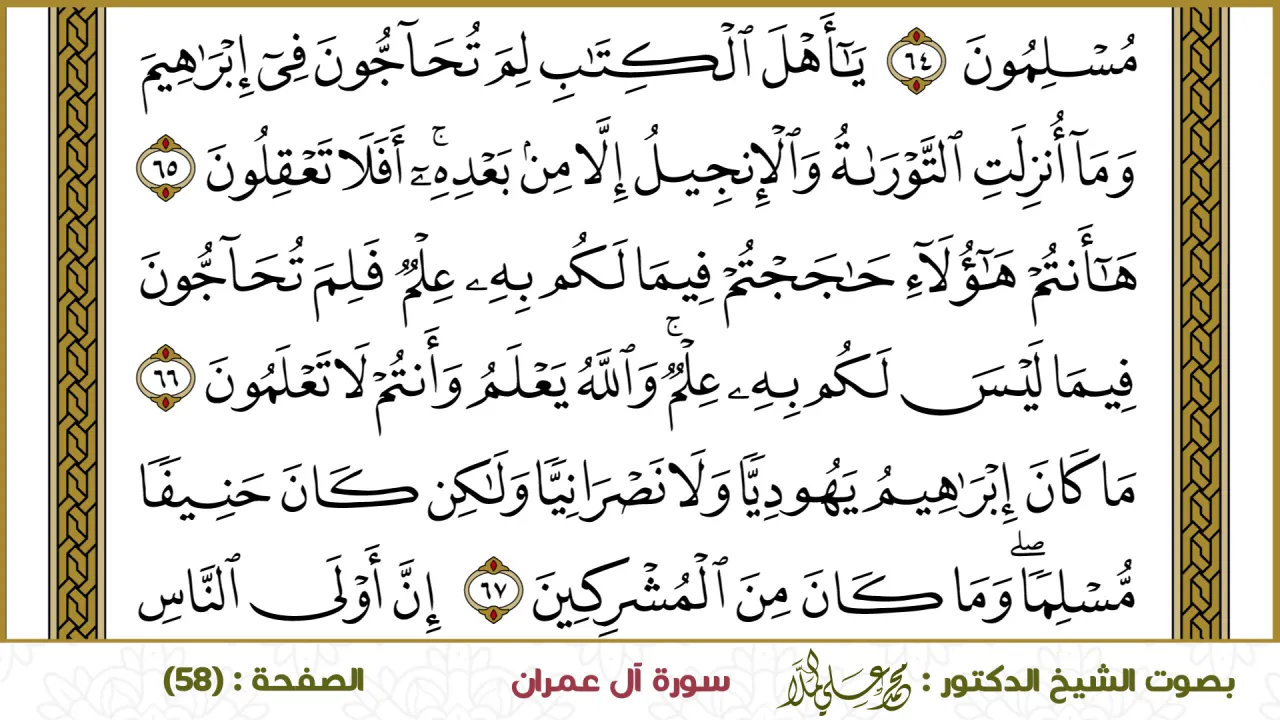 مُسۡلِمُونَ ٦٤ يَٰٓأَهۡلَ ٱلۡكِتَٰبِ لِمَ تُحَآجُّونَ فِيٓ إِبۡرَٰهِيمَ
وَمَآ أُنزِلَتِ ٱلتَّوۡرَىٰةُ وَٱلۡإِنجِيلُ إِلَّا مِنۢ بَعۡدِهِۦٓۚ أَفَلَا تَعۡقِلُونَ ٦٥
هَٰٓأَنتُمۡ هَٰٓؤُلَآءِ حَٰجَجۡتُمۡ فِيمَا لَكُم بِهِۦ عِلۡمٞ فَلِمَ تُحَآجُّونَ
فِيمَا لَيۡسَ لَكُم بِهِۦ عِلۡمٞۚ وَٱللَّهُ يَعۡلَمُ وَأَنتُمۡ لَا تَعۡلَمُونَ ٦٦
مَا كَانَ إِبۡرَٰهِيمُ يَهُودِيّٗا وَلَا نَصۡرَانِيّٗا وَلَٰكِن كَانَ حَنِيفٗا
مُّسۡلِمٗاۖ وَمَا كَانَ مِنَ ٱلۡمُشۡرِكِينَ ٦٧ إِنَّ أَوۡلَى ٱلنَّاسِ
بصوت الشيخ الدكتور : محمد علي الملا سورة آل عمران الصفحة : (58)